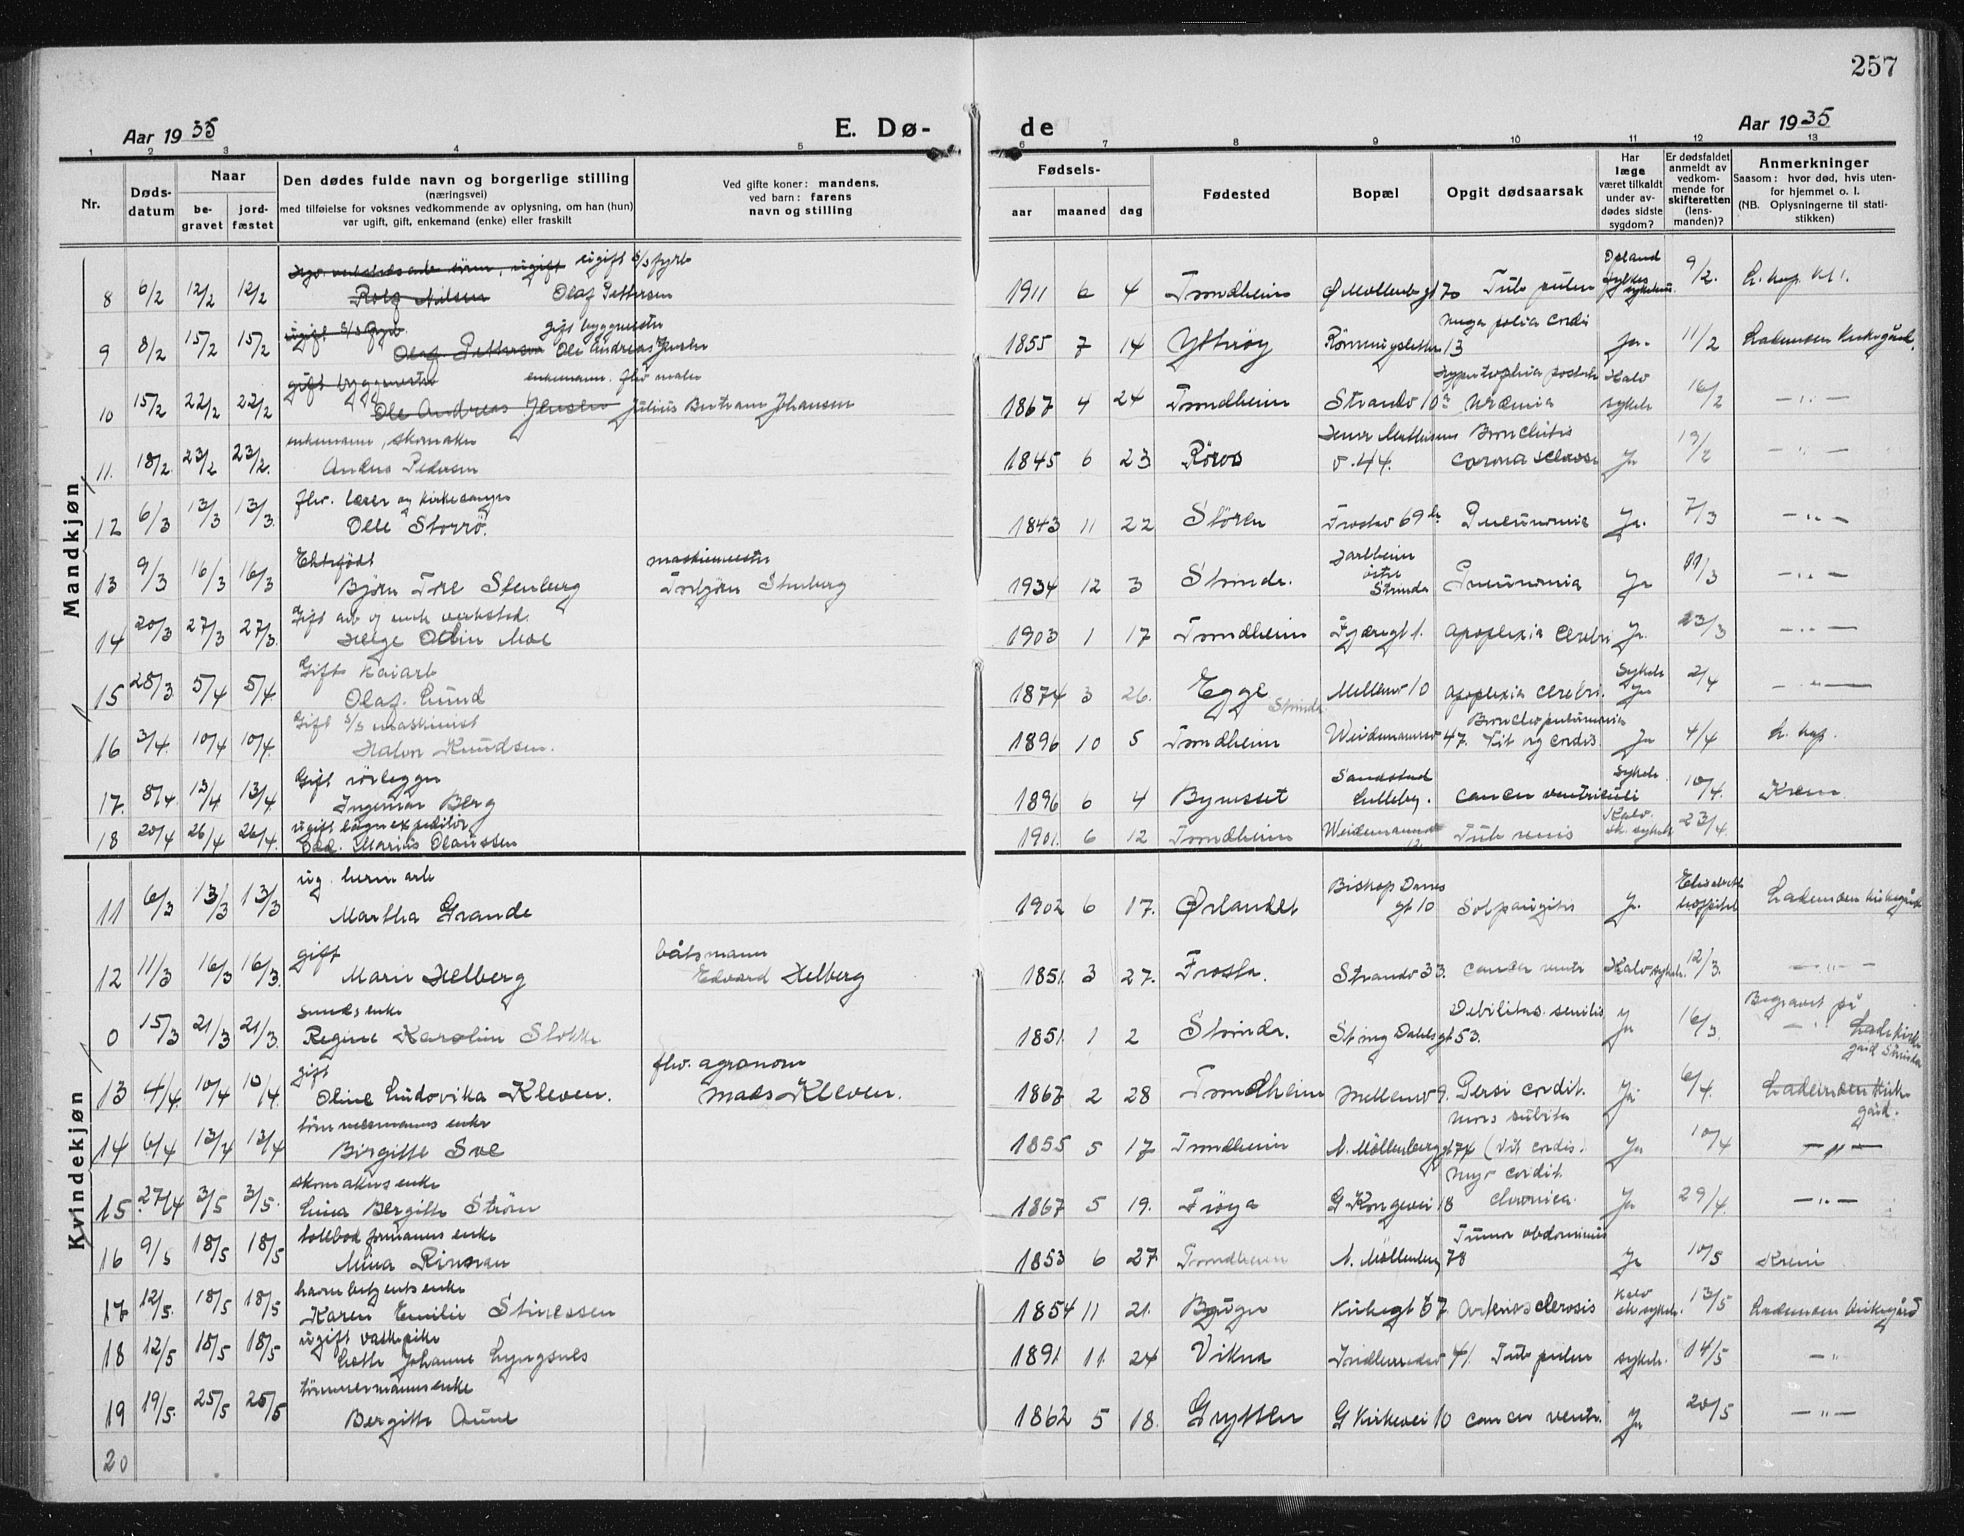 257
Aar 1935
E. Dø-
de
Aar 1935
1 2 3 4 5 6 7 8 9 10 11 12 13
Nr.
Døds-
datum
Naar
be-
gravet
jord-
fæstet
Den dødes fulde navn og borgerlige stilling
(næringsvei)
med tilføielse for voksnes vedkommende av oplysning, om han (hun)
var ugift, gift, enkemand (enke) eller fraskilt
Ved gifte koner: mandens,
ved barn: farens
navn og stilling
Fødsels-
aar maaned dag
Fødested
Bopæl
Opgit dødsaarsak
Har
læge
været tilkaldt
under av-
dødes sidste
sygdom?
Er dødsfaldet
anmeldt av
vedkom-
mende for
skifteretten
(lens-
manden)?
Anmerkninger
Saasom: hvor død, hvis uten-
for hjemmet o. l.
(NB. Oplysningerne til stati-
stikken)
Mandkjøn
ugift s/s fyrb
8 6/2 12/2 12/2 Rolf Nilsen Olaf Pettersen 1911 6 4 Trondheim 70 Tub pulm 9/2.
gift byggmester
9 8/2 15/2 15/2 Olaf Pettersen Ole Andreas Jensen 1855 7 14 Ytterøy 13 Ja. 11/2 Lademoen Kirkegård.
gift byggmester enkemann. flv maler
10 15/2 22/2 22/2 Ole Andreas Jensen Julius Bertram Johansen 1867 4 24 Trondheim Strandv 10 Uræmia sykeh 16/2 — " —
enkemann, skomaker Bronchitis
11. 18/2 23/2 23/2. Anders Pedersen 1845 6 23 Röros v. 44. Ja 19/2 — " —
flv. lærer og kirkesanger
12 6/3 13/3 13/3. Olle Storrö. 1843 11 22 Stören 69 Pneumonia Ja. 7/3 — " —
Ektefödt maskinmester
13 9/3 16/3 16/3 Björn Tore Stenberg Torbjörn Stenberg 1934 12 3 Strinda. Strinda Pneumonia Ja 11/3 — " —
Gift arb
14 20/3 27/3 27/3. Helge Odin Moe 1903 1 17 Trondheim Fjæregt 1. Apoplexia cerebri Ja. 23/3 — " —
Gift Kaiarb
15 28/3 5/4 5/4. Olaf Lund 1874 3 26. Egge Mellemv 10 apoplexia cerebri. Ja 2/4 — " —
Gift s/s maskinist Bronchopneumonia
16 3/4. 10/4 10/4. Halvor Knudsen. 1896 10 5 Trondheim Weidemannsv 47. Vit org cordis. Ja 4/4
Gift rörlegger
17. 8/4 13/4 13/4 Ingemar Berg 1896 6 4 Bynesset cancer ventriculi sykeh. 10/4. Krem.
ugift
18 20/4 26/4 26/4. Marius Olaussen 1901. 6 12 Trondheim Weidemannsv Tub renis 23/4.
Kvindekjøn
ug. herm arb Biskop Darres
11 6/3 13/3 13/3 Martha Grande 1902 6 17. Ørlandet gt 10 Salpingitis Ja. Elisabeth hospital Lademoen kirkegård
gift båtsmann
12 11/3 16/3 16/3. Marie Helberg Edvard Helberg 1851. 3 27. Frosta. Strandv 33. cancer ventr 12/3. — " —
Smeds enke Debilitas senilis Begravet på
0 15/3 21/3 21/3. Regine Karoline Slokke 1851. 1 2 Strinda. 53. Ja 16/3 Lade kirke
gård Strinda
gift flv. agronom
13 4/4. 10/4 10/4. Oline Ludovika Kleven. Mads Kleven. 1867 2 28 Trondheim Mellemv 9. Ja 6/4. Lademoen Kirke
gård.
tömmermanns enke mors subita
14 6/4 13/4 13/4 Birgitte Sve 1855 5 17 Trondheim N. Möllenberg gt 74 (Vit cordis). Ja 10/4 — " —
skomakers enke Myo cordit.
15. 27/4 3/5 3/5. Lina Bergitte Ström 1867 5 19. Fröya G Kongevei 18 chronica. Ja 29/4. — " —
tollbod formanns enke Tumor abdominis
16 9/5 18/5 18/5 Mina Rinnan 1853 6 27 Trondheim N. Möllenberg 78 Ja 10/5 Krem
havnebetjents enke
17 12/5. 18/5 18/5 Karen Emilie Stinessen 1854 11 21. Bjugn Kirkegt 67 Arteriosclerosis 13/5 Lademoen kirkegård
ugift vaskepike
18 12/5 18/5 18/5 Lotte Johanne Lyngsnes 1891 11. 24 Vikna 41. Tub pulm sykeh. 14/5 — "
tömmermanns enke
19 19/5. 25/5 25/5 Bergitte Aune 1862 5 18. Grytten G Kirkevei 10 cancer ventr. Ja 20/5 — " —
20